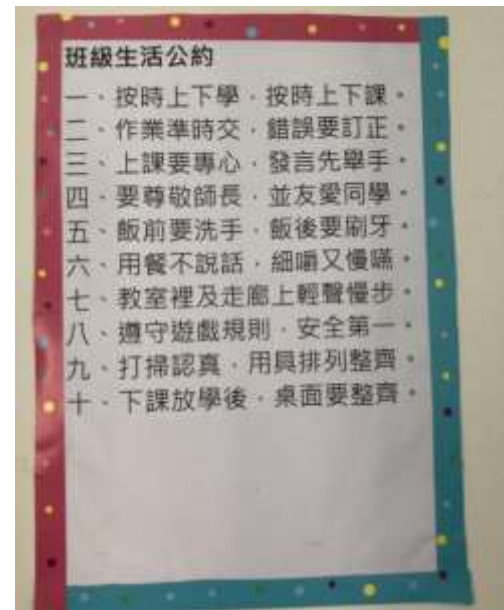 班級生活公約
一、按時上下學，按時上下課。
二、作業準時交，錯誤要訂正。
三、上課要專心，發言先舉手。
四、要尊敬師長，並友愛同學。
五、飯前要洗手，飯後要刷牙。
六、用餐不說話，細嚼又慢嚥。
七、教室裡及走廊上輕聲慢步。
八、遵守遊戲規則，安全第一。
九、打掃認真，用具排列整齊。
十、下課放學後，桌面要整齊。